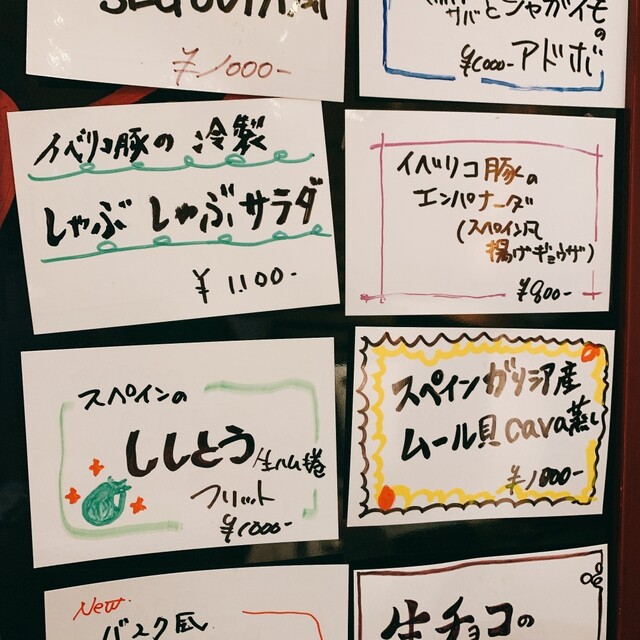 ¥1000-
サバとジャガイモの
アドボ
¥1000-
イベリコ豚の 冷製
しゃぶしゃぶサラダ
¥1,100-
イベリコ豚の
エンパナーダ
(スペイン風
揚げギョウザ)
¥800-
スペインの
ししとう生ハム捲
フリット
¥1000-
スペインガリシア産
ムール貝cava蒸し
¥1000-
New.
バスク風
生チョコの